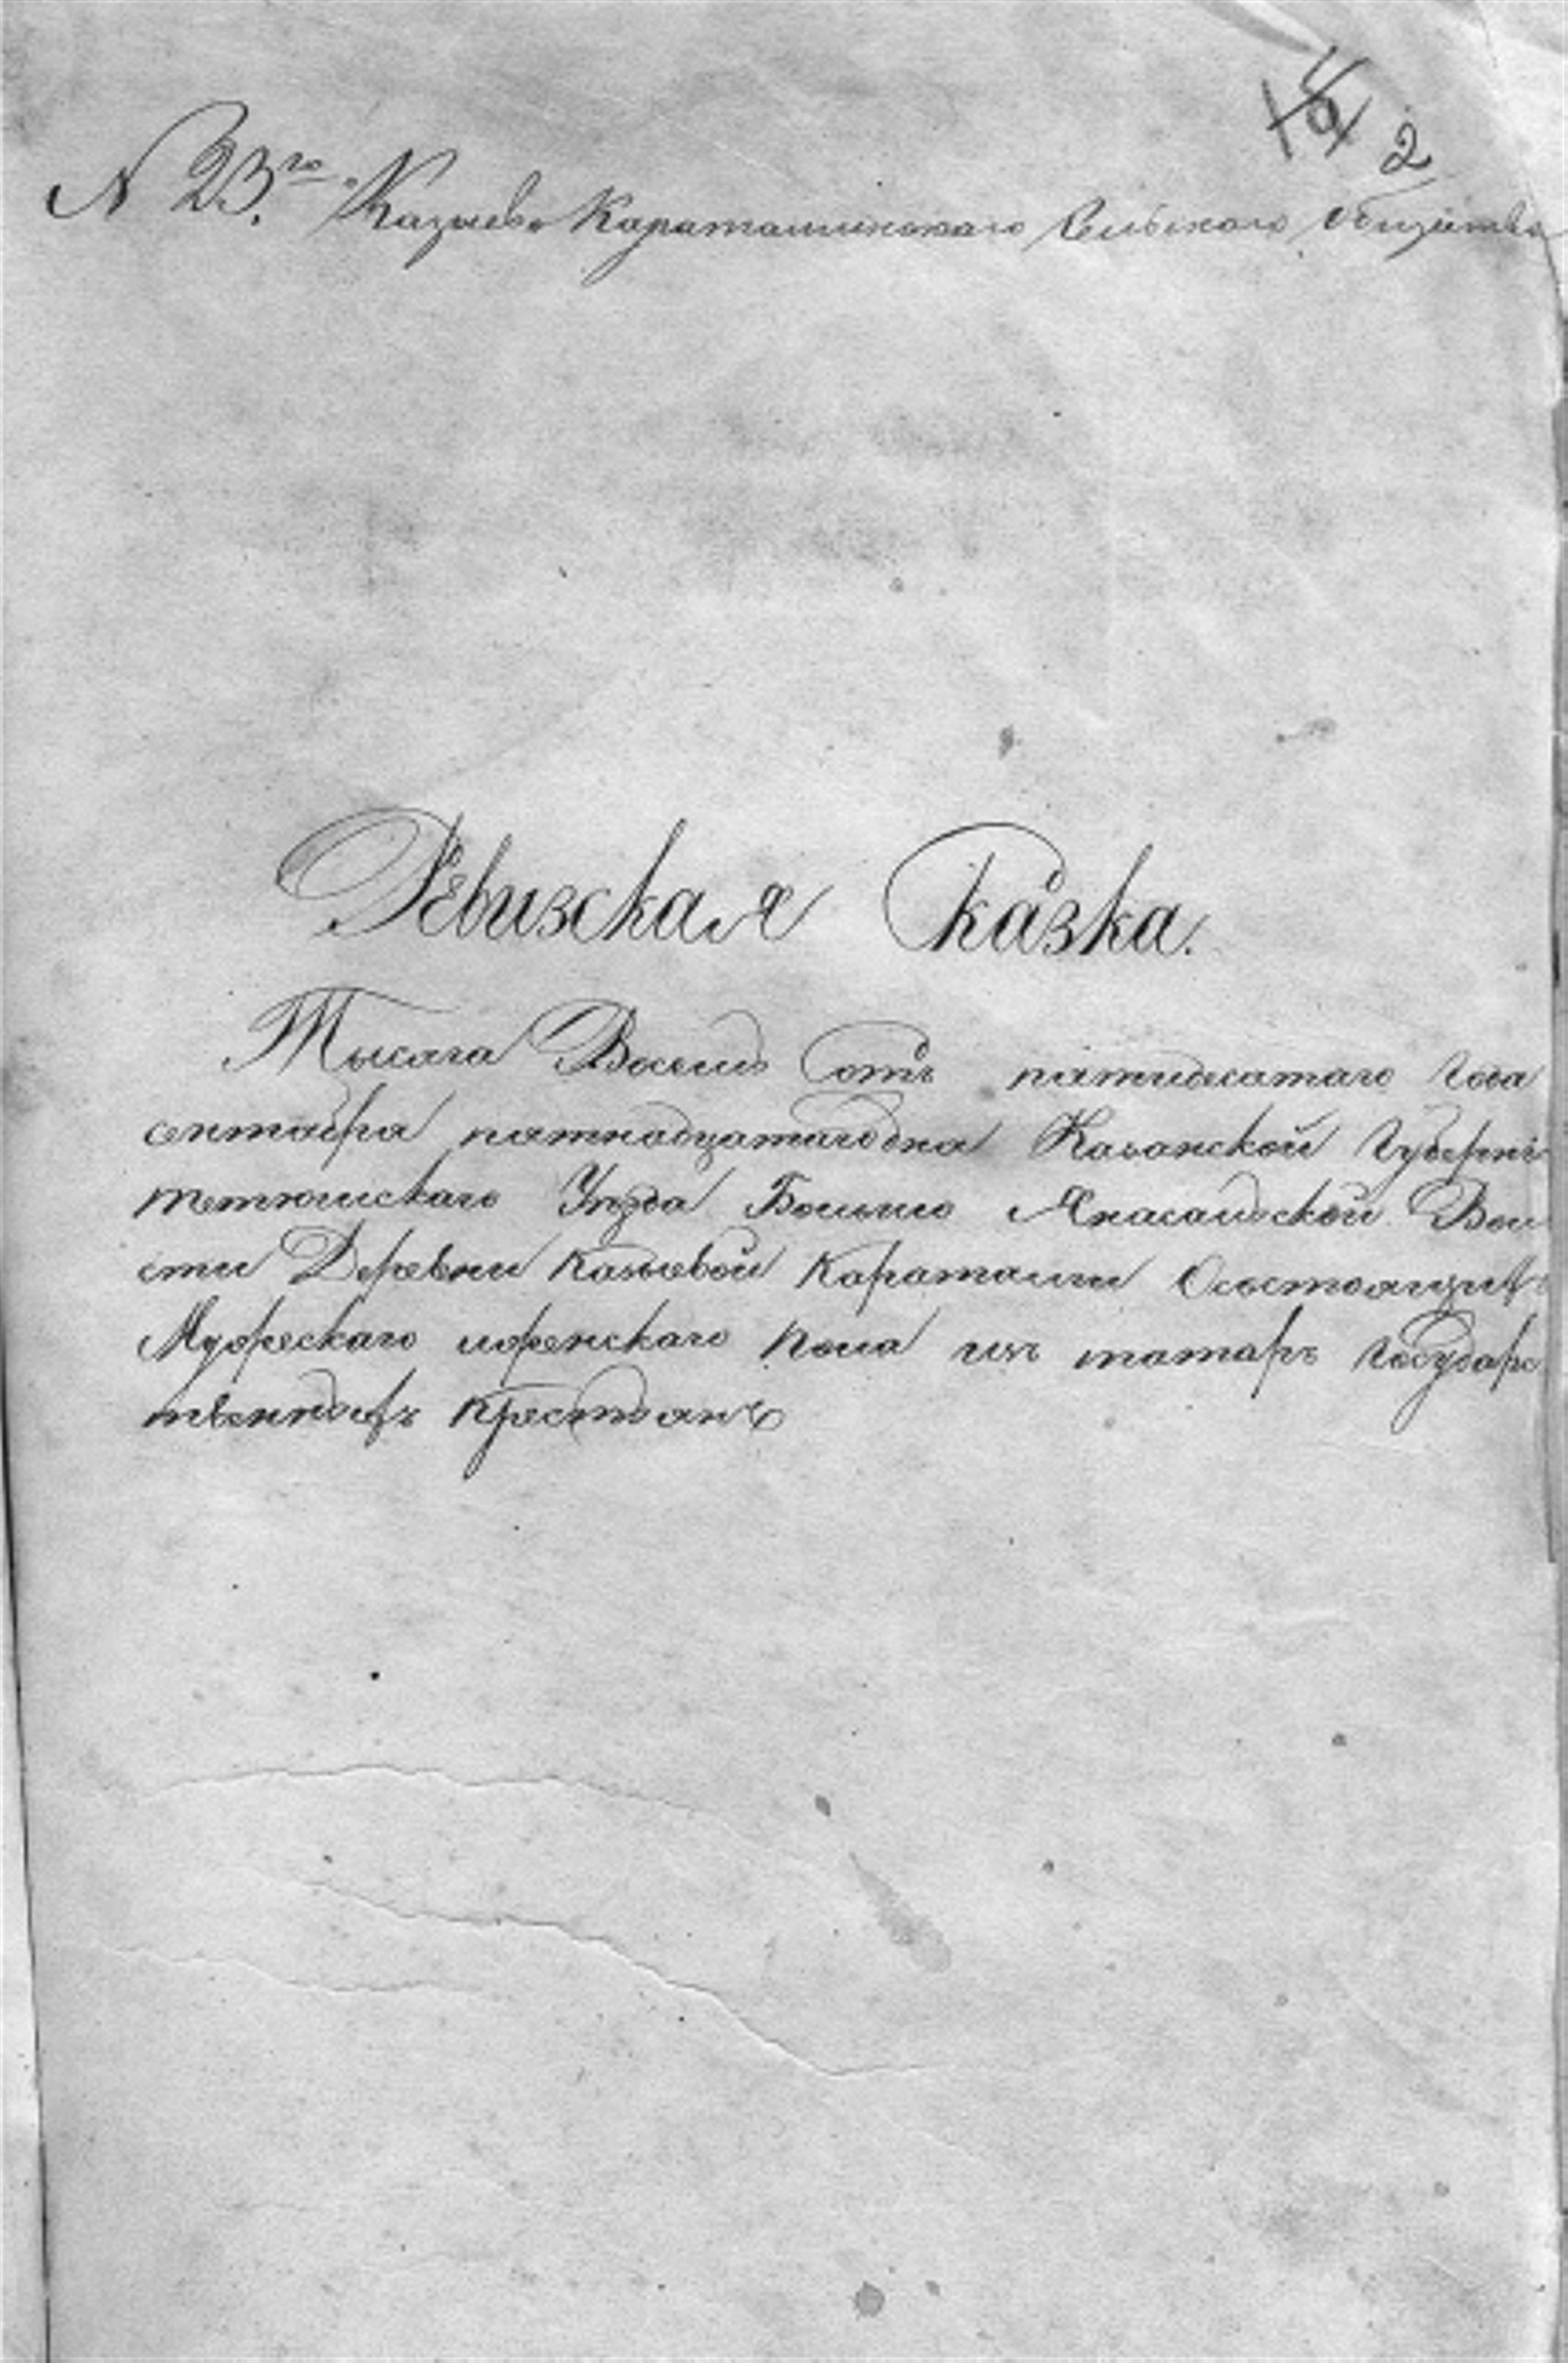 2
N 23.го Казыево Караташинскаго Сельскаго Общества
Ревизская Сказка.
Тысяча Восемь Сотъ пятидесятаго Года
сентября пятнадцатагодня Казанской Губерні
тетюшскаго Уезда Большо Янасальской Вол
сти Деревни Казыевой Караташи Осостоящихъ
Мужескаго иженскаго пола изъ татаръ Государс
твенныхъ крестьянъ